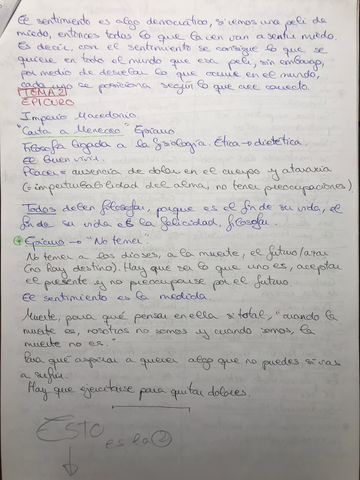 El sentimiento es algo democrático, si vemos una peli de
miedo, entonces todos lo que la ven van a sentir miedo.
Es decir, con el sentimiento se consigue lo que se
quiere en todo el mundo que vea peli, sin embargo,
por medio de desvelar lo que ocurre en el mundo,
cada uno se posiciona según lo que cree correcto.
TEMA 2
EPICURO
Imperio Macedonio.
"Carta a Meneceo" Epicuro
Filosofía ligada a la fisiología. Ética → dietética.
El buen vivir.
Placer = ausencia de dolor en el cuerpo y ataraxia
(= imperturbabilidad del alma, no tener preocupaciones)
Todos deben filosofar, porque es el fin de su vida, el
fin de su vida es la felicidad, filosofar.
Epicuro → "No temer"
No temer a los dioses, a la muerte, el futuro/azar
(no hay destino). Hay que ser lo que uno es, aceptar
el presente y no preocuparse por el futuro.
El sentimiento es la medida
Muerte, para qué pensar en ella si total, "cuando la
muerte es, nosotros no somos y cuando somos, la
muerte no es."
Para qué aspirar a querer algo que no puedes si vas
a sufrir.
Hay que ejercitarse para quitar dolores.
ESTO
es la 2